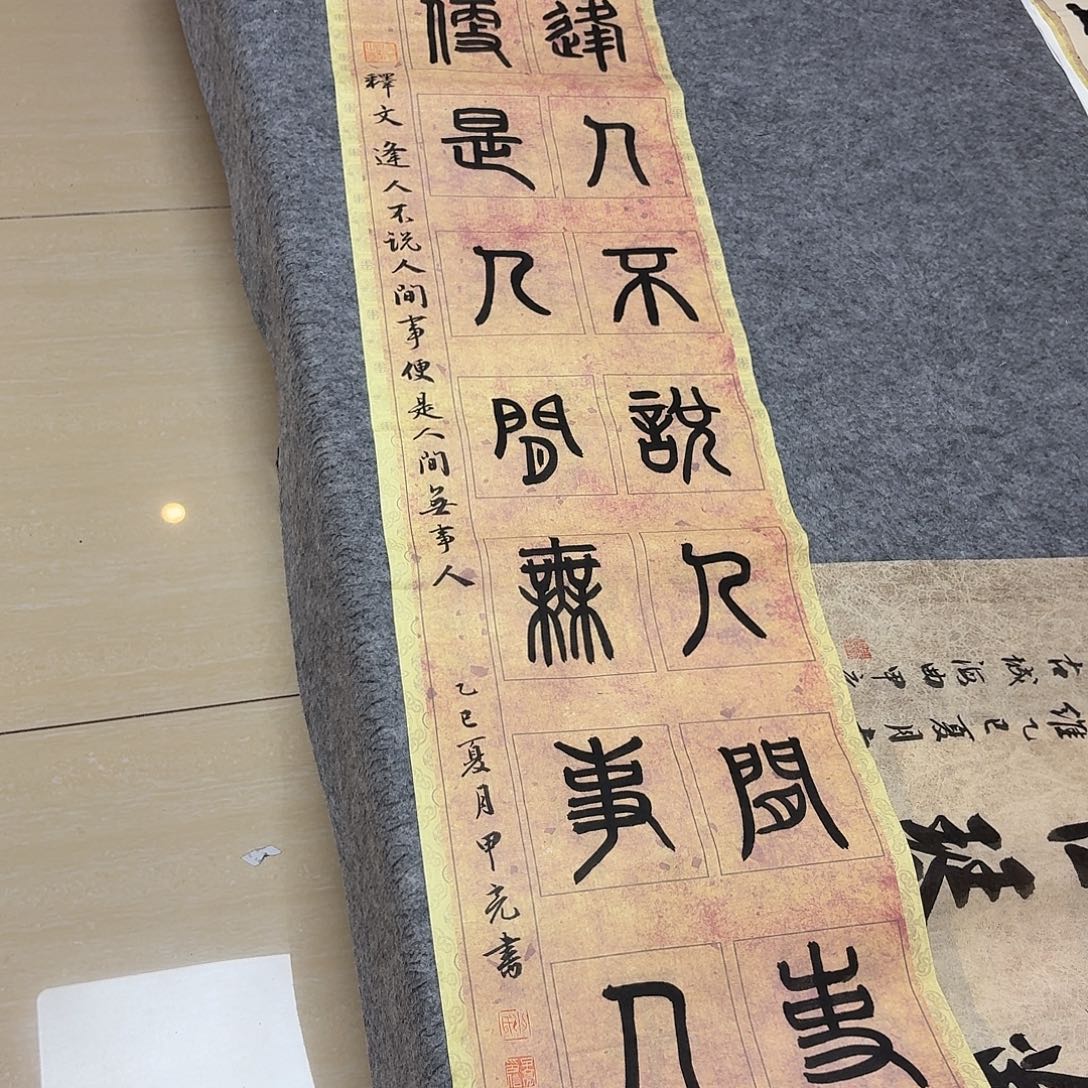 逢人不説人間事
便是人間無事人
釋文 逢人不说人间事便是人间無事人
乙巳夏月甲尧書